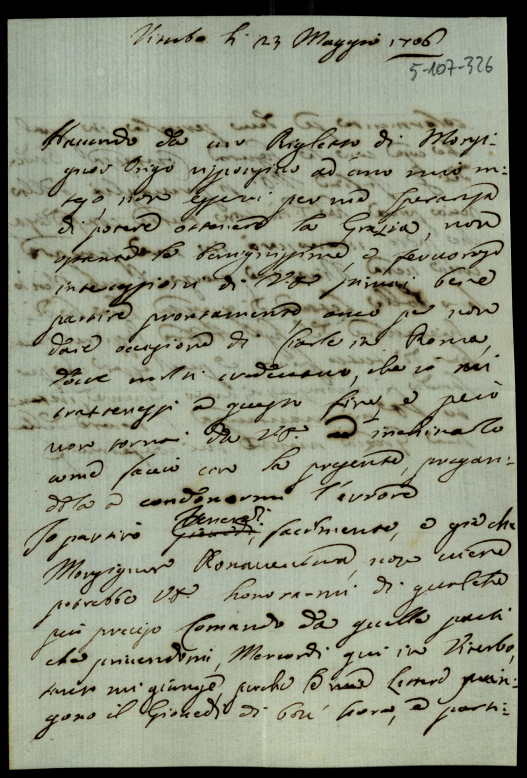 Viterbo li 23 Maggio 1706
5-107-326
Havendo da un Biglietto di Monsi-
gnor Origo risposto ad uno mio in-
teso, non esservi per me speranza
di potere ottenere la Grazia, non
ostante le benignissime, e fervorose
intercessioni di VS. stimai bene
partire prontamente, anco per non
dare occasione di Ciarle in Roma,
dove molti credevano, che io mi
trattenessi a questo fine, e però
non tornai da VS. ad inchinarlo
come faccio con la presente, pregan-
dola a condonarmi l'errore
Io partirò Venerdì facilmente, e già che
Monsignore Bonaventura non viene
potrebbe VS. honorarmi di qualche
più preciso Comando da quelle parti
che pervenendomi, Mercordì qui in Viterbo,
mi giunge, perche le Lettere giun-
gono il Giovedì di bon' hora, e parti-